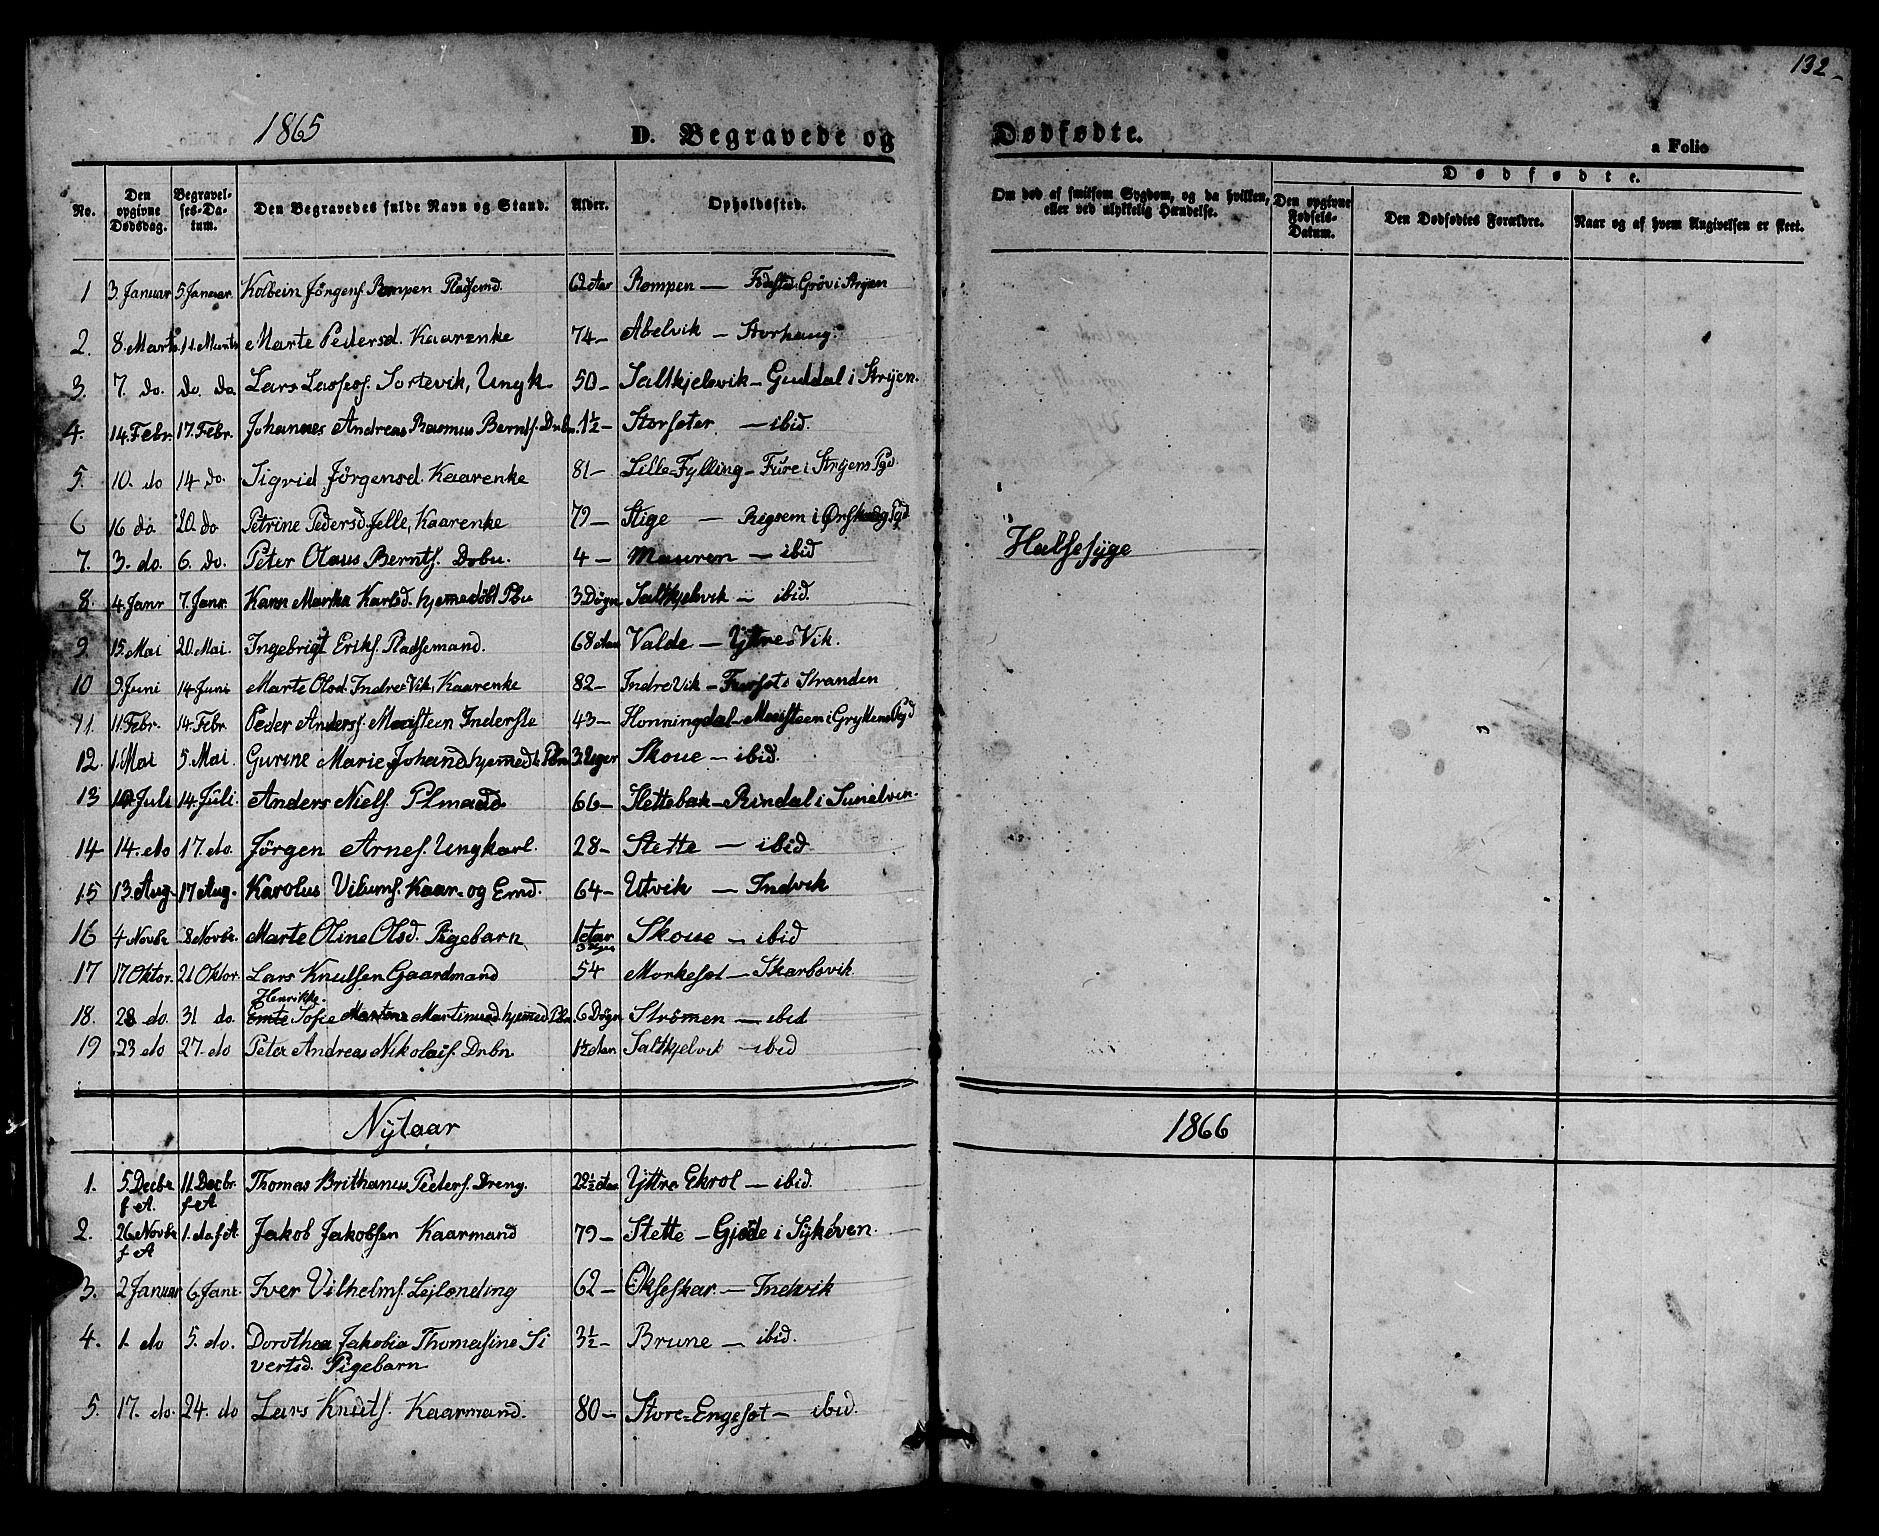 132
1865 D. Begravede og Dødfødte. a Folio
No. Den opgivne Dødsdag. Begravelses-Datum. Den Begravedes fulde Navn og Stand. Alder. Opholdssted. Om død af smitsom Sygdom, og da hvilken, eller ved ulykkelig Hændelse. Dødfødte. Den opgivne Fødsels-Datum. Den Dødfødtes Forældre. Naar og af hvem Angivelsen er skeet.
1 3. Januar 5. Januar Kolbein Jörgens. Rempen Pladsemd. 62 Aar Rempen — Födested Gröv i Stryen
2. 8. Marts 11. Marts Marte Pedersd. Kaarenke 74 — Abelvik — Storhaug.
3. 7. do. do. do Lars Lassos. Sortevik, Ungk. 50 — Saltkjelvik — Guddal i Stryen.
4. 14. Febr. 17. Febr. Johannes Andreas Rasmus Bernts. Drbn. 1½ — Storseter — ibid.
5. 10. do 14 do. Sigrid Jörgensd. Kaarenke 81 — Lille-Fylling — Fure i Stryens Pgd.
6 16 do 20 do Petrine Pedersd. Jelle, Kaarenke 79 — Stige — Rigsem i Ørskoug Pgd
7. 3. do. 6. do. Peter Olaus Bernts. Drbn. 4 — Mauren — ibid Halsesyge
8. 4. Janr 7. Janr. Karn Martha Karlsd. hjemedöbt Pbn 3 Dögn Saltkjelvik — ibid.
9. 15. Mai 20. Mai. Ingebrigt Eriks. Pladsemand. 68 Aar Valde — Yttre-Vik.
10 9. Juni 14. Juni Marte Olsd. Indre Vik, Kaarenke 82 — Indre Vik — Furset i Stranden
11. 11. Febr. 14. Febr. Peder Anders. Meisteen Inderste 43 — Honningdal — Meisteen i Gryttens Pgd
12. 1. Mai 5. Mai. Gurine Marie Johansd hjemedöbt Pbn 3 Uger Skoue — ibid.
13 10. Juli 14. Juli. Anders Niels. Plmand 66 — Slettebak — Rindal i Sunelven.
14 14. do 17. do. Jörgen Arnes. Ungkarl. 28 — Stette — ibid.
15 13. Aug. 17 Aug. Karolus Vilums. Kaar- og Emd. 64 — Utvik — Indvik
16 4 Novbr 8 Novbr. Marte Oline Olsd. Pigebarn 1 Aar 3 Uger Skoue — ibid
17 17 Oktor. 21 Oktor. Lars Knutsen Gaardmand 54 Morkeset — Skarbövik
Henrikke.
18. 28 do. 31 do. Emte Sofie Martine Martinusd. hjemed Pbn 6 Dögn Strömen — ibid
19 23 do 27. do Peter Andreas Nikolais. Drbn 1½ Aar Saltkjelvik — ibid
Nytaar 1866
1. 5. Decbr f. A. 11. Decbr. f. A. Thomas Brithanus Peders. Dreng 22½ Aar Yttre Ekrol — ibid.
2. 26 Novbr f A 1. do f A. Jakob Jakobsen Kaarmand 79 — Stette — Gjöde i Sykelven.
3. 2 Januar 6. Janr. Iver Vilhelms. Lejlænding 62 — Okseskar — Indvik
4. 1. do 5. do. Dorothea Jakobia Thomasine Sivertsd. Pigebarn 3½ — Brune — ibid.
5. 17. do. 24. do Lars Knuts. Kaarmand. 80 — Store-Engeset — ibid.